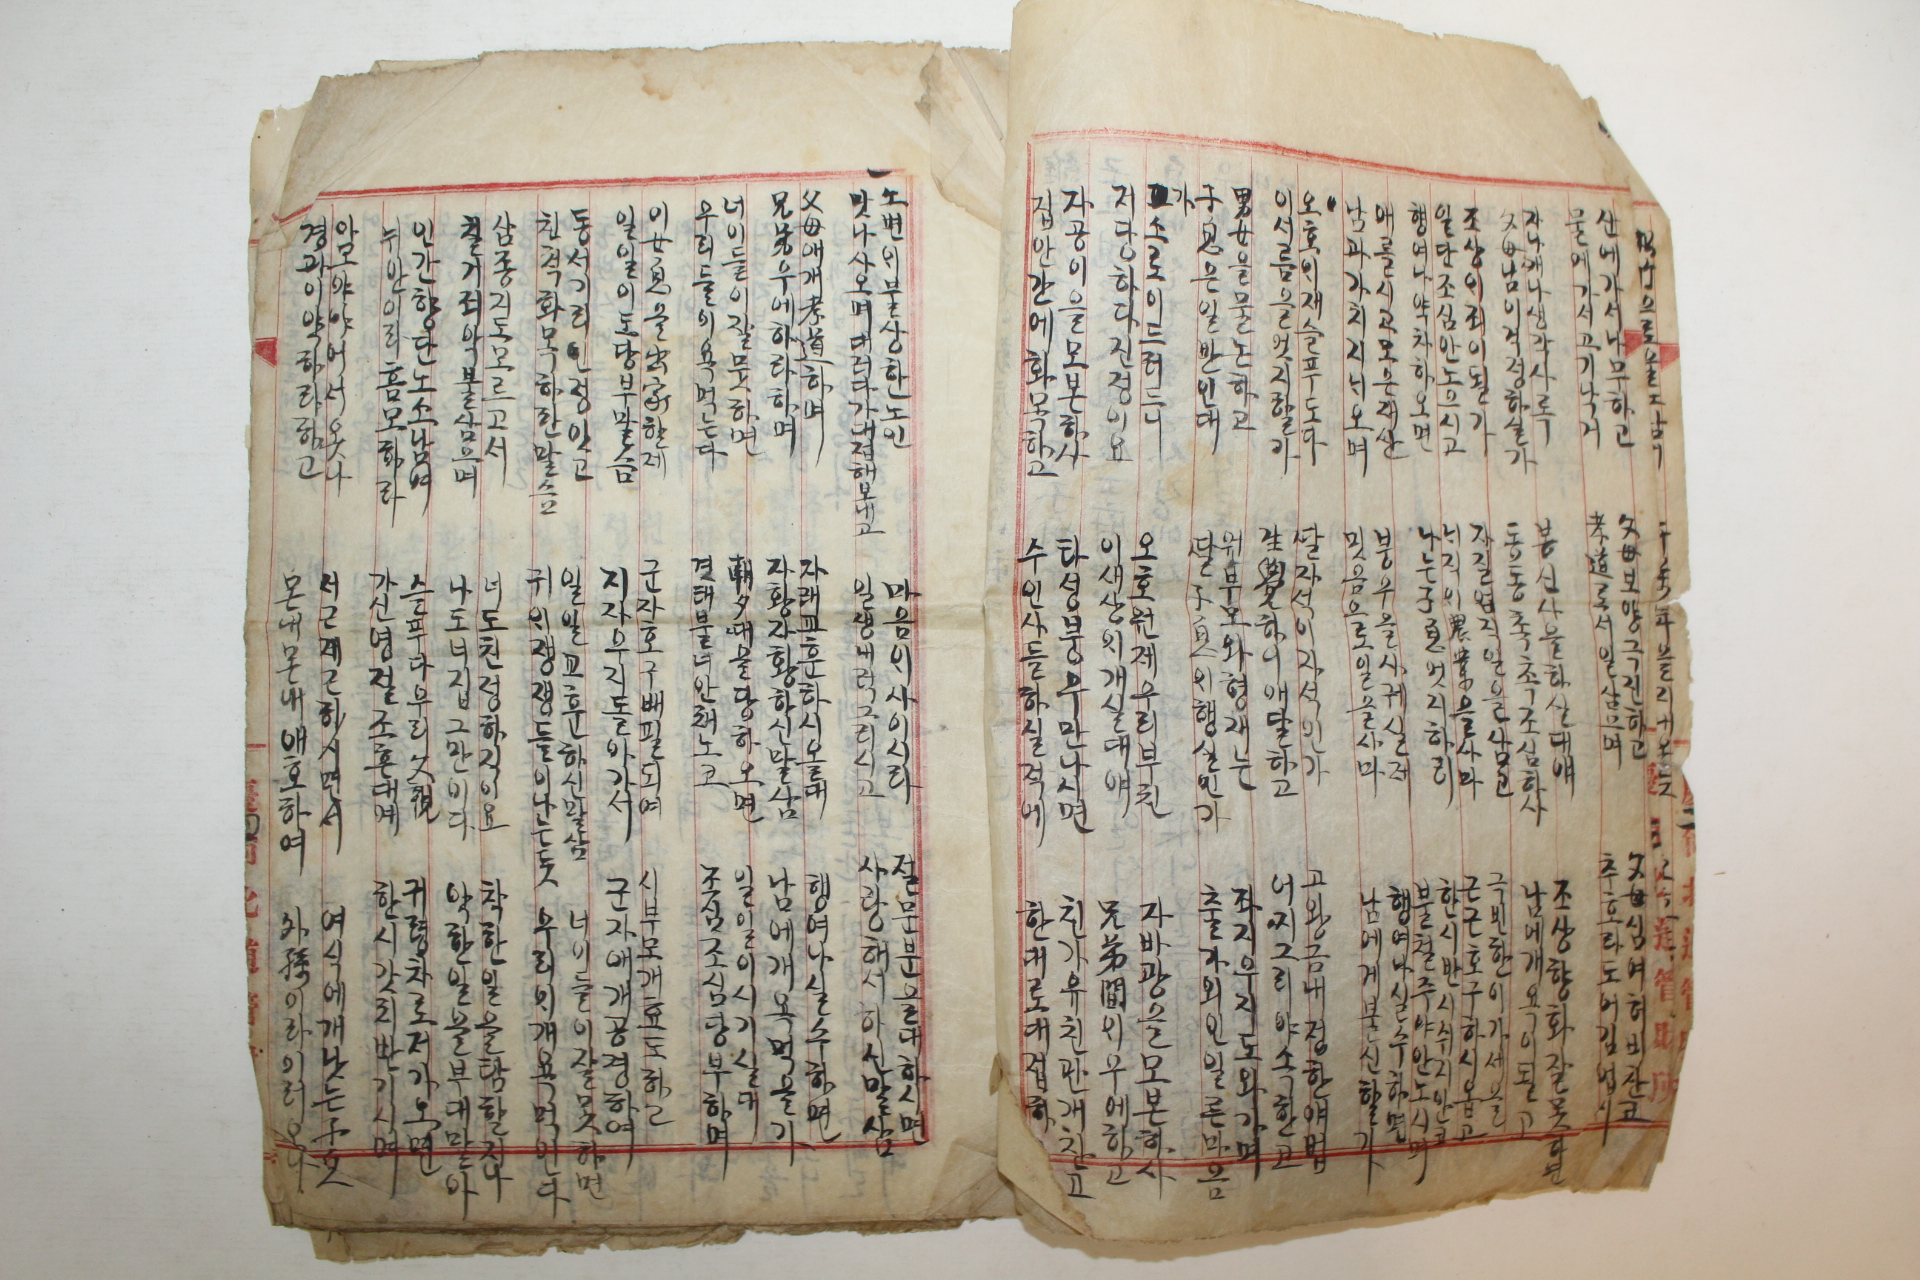 산에가서나무하고 父母보양극진하고 父母심여허비잔코
물에가서고기낙거 孝道로서일삼으며 추호라도어김업시
자나깨나생각사록 봉선사을하실대애 조상향화잘못하면
父母님이걱정하실가 동동촉촉조심하사 남에개욕이될고
조상의죄이될가 자질업지일을삼고 극빈한이가세을
일단조심안노으시고 너직의農業을사마 근근호구하시옵고
행여나약차하오면 나는子息멋지하리 한시반시쉬지안코
불철주야안도시며
애를시고모은재산 붕우을사귀실적 행여나실수하면
남과가치지너오며 밋음으로일을사마 남에게불신할가
오호의재슬푸도다 딸자석이자석인가 고왕금내정한얘법
이서름을엇지할가 生男하니애달하고 어찌그리야속한고
男女을물논하고 원부모와형재는 좌지우지도와가며
子息은일반인대 딸子息의행실인가 출가외인일른마음
가소로이드러드니 오호원제우리부친 자바광을모본하사
저당하다진정이요 이새상의개실대애 兄弟間의우에하고
자공이을모본하사 타성붕우만나시면 친가유친판개친고
집안간에화목하고 수인사들하실적에 한대로대접하
노변의불상한노인 마음의사이시라 절문분을대하시면
맛나사오며대려다가대접해보내고 일생내력그리시고 사랑해서하신말삼
父母애개孝道하며 자래교훈하시올대 행여나실수하면
兄兄우에하라하며 자황자황하신말삼 남에개욕먹을가
너이들이잘못하면 朝夕대을당하오면 일일이시기실대
우리들의욕먹는다 경태불너안채노코 조심조심당부하며
이女息을出家할제 군자호구배필되여 시부모개효도하고
일일이도당부말슴 지자우지돌아가서 군자애개공경하여
동서기리인정잇고 일일교훈하신말삼 너이들이잘못하면
친척화목하란말슴 귀의쟁쟁들이나는듯 우리의개욕먹인다
삼종지도모르고서 너도친정하지이요 착한일을탐할지나
칠거죄악불삼으며 나도너지집그만이다 악한일을부대말아
인간향단노소남여 슬푸다우리父親 귀령차로저가오면
누안이리흠모하라 가신영절조흔대며 한시갓치반기시며
아모야야어서옷나 서근재근하시면서 여식에개낫는子女
경과이약하라하고 몬내몬내애호하여 外孫이라이러오나